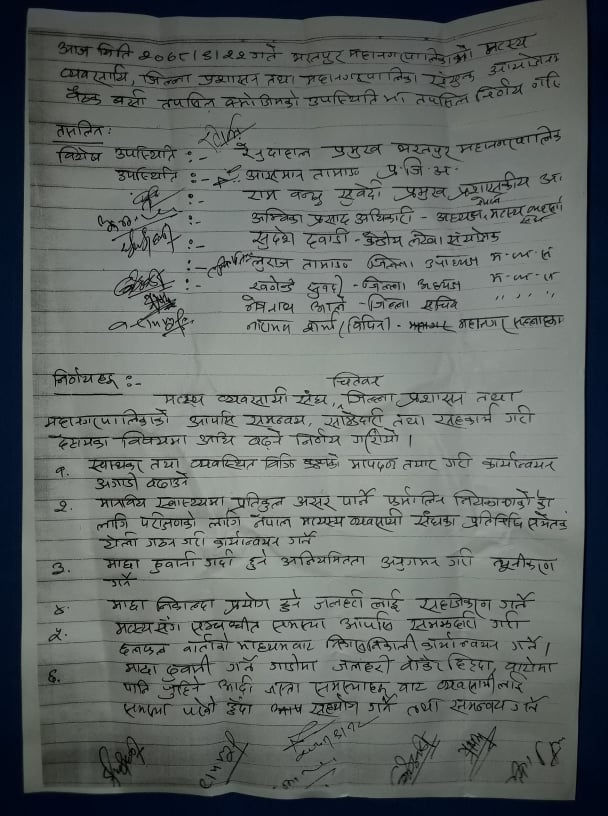 आज मिति २०७८।६।२२ गते भरतपुर महानगरपालिकाको मत्स्य
व्यवसायी, जिल्ला प्रशासन तथा महानगरपालिका संयुक्त आयोजना
बैठक बसी तपसिल बमोजिमको उपस्थितिमा तपसिल निर्णय गरि
तपसिल:
विशेष उपस्थिति :- प्रमुख भरतपुर महानगरपालिका
उपस्थिति :- आसमान तामाङ प्र.जि.अ.
:- राम बन्धु सुवेदी प्रमुख प्रशासकीय अ.
:- अम्बिका प्रसाद अधिकारी - अध्यक्ष नेपाल मत्स्य व्यवसायी संघ
:- सुदेश दवाडी - केन्द्रीय लेखा संयोजक
:- तामाङ जिल्ला उपाध्यक्ष म.व्य.सं
:- खगेन्द्र सुवेदी - जिल्ला अध्यक्ष म.व्य.सं
:- जिल्ला सचिव " " " "
:- शर्मा (विपिन) - महानगर
निर्णयहरु :-
मत्स्य व्यवसायी संघ, चितवन जिल्ला प्रशासन तथा
महानगरपालिकाको आपसि समन्वय, साझेदारी तथा सहकार्य गरी
देहायका विषयमा अघि बढ्ने निर्णय गरियो ।
१. स्वास्थ्यकर तथा व्यवस्थित बिक्रि कक्षको मापदण्ड तयार गरी कार्यान्वयन
अगाडी बढाउने
२. मानविय स्वास्थ्यमा प्रतिकुल असर पार्ने फर्मालिन
लागि परीक्षणको लागि नेपाल मत्स्य व्यवसायी संघका प्रतिनिधि समेतको
टोली गठन गरी कार्यान्वयन गर्ने
३. माछा ढुवानी गर्दा हुने अनियमितता अनुगमन गरी न्यूनीकरण
गर्ने
४. माछा निकाल्दा प्रयोग हुने जलहरी लाई सहजिकरण गर्ने
५. मत्स्यसँग सम्बन्धीत समस्या आपसि समझदारी गरी
छलफल वार्ताको माध्यमबाट निकास निकाली कार्यान्वयन गर्ने ।
६. माछा ढुवानी गर्ने गाडीमा जलहरी बोकेर हिड्दा, बाटोमा
पानि चुहिने आदी जस्ता समस्याहरु बाट व्यवसायी लाई
समस्या परेको हुँदा सहयोग गर्ने तथा समन्वय गर्ने